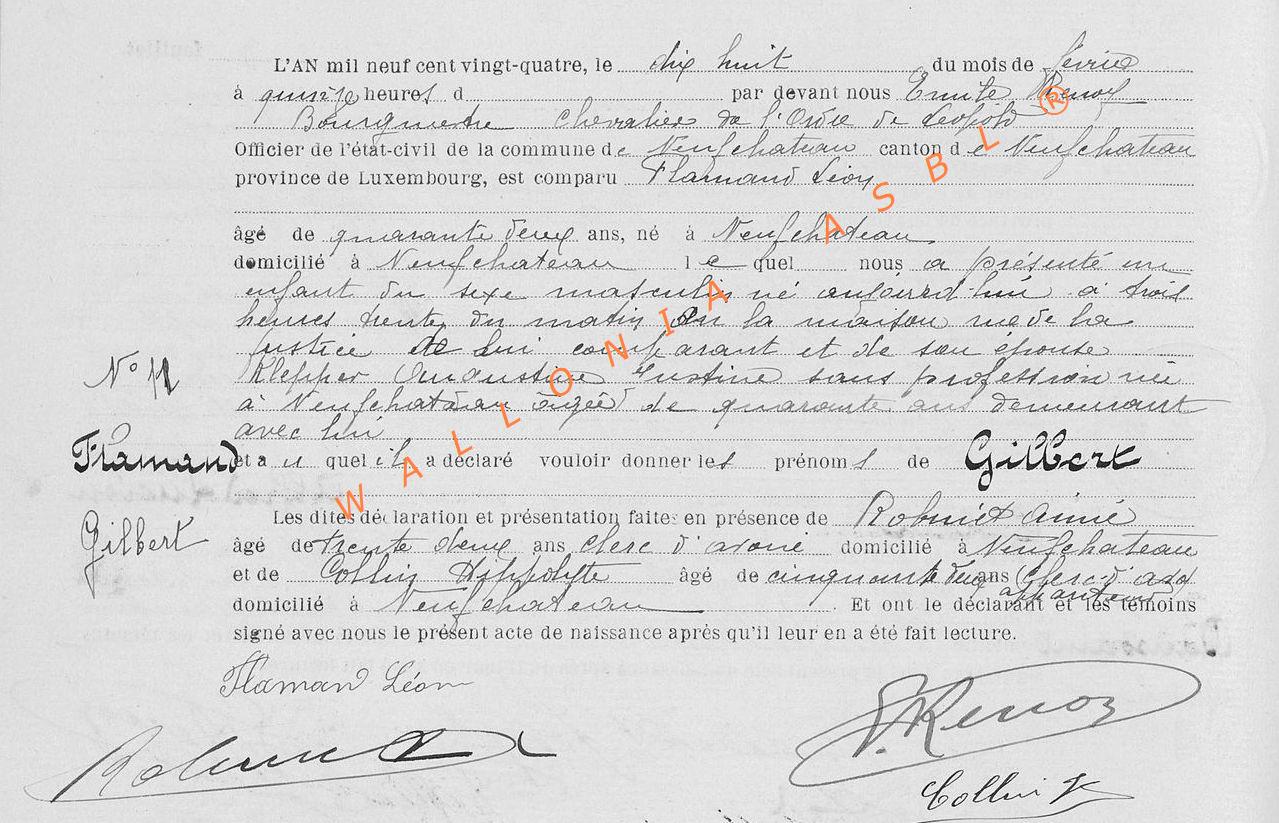 L'AN mil neuf cent vingt-quatre, le dix huit du mois de février
à quinze heures d par devant nous Emile Renoz
Bourgmestre Chevalier de l'Ordre de Léopold
Officier de l'état-civil de la commune de Neufchateau canton de Neufchateau
province de Luxembourg, est comparu Flamand Léon
âgé de quarante deux ans, né à Neufchateau
domicilié à Neufchateau le quel nous a présenté un
enfant du sexe masculin né aujourd'hui à trois
heures trente du matin en la maison rue de la
Justice de lui comparant et de son épouse
Klepper Augustine Justine sans profession née
à Neufchateau âgée de quarante ans demeurant
No 11
avec lui
Flamand
et au quel il a déclaré vouloir donner les prénoms de Gilbert
Gilbert
Les dites déclaration et présentation faites en présence de Aimé
âgé de trente deux ans clerc d'avoué domicilié à Neufchateau
et de Collin Hippolyte âgé de cinquante deux ans clerc-d'
domicilié à Neufchateau . Et ont le déclarant et les témoins
signé avec nous le présent acte de naissance après qu'il leur en a été fait lecture.
Flamand Léon
E. Renoz
Collin
WALLONIA ASBL ®